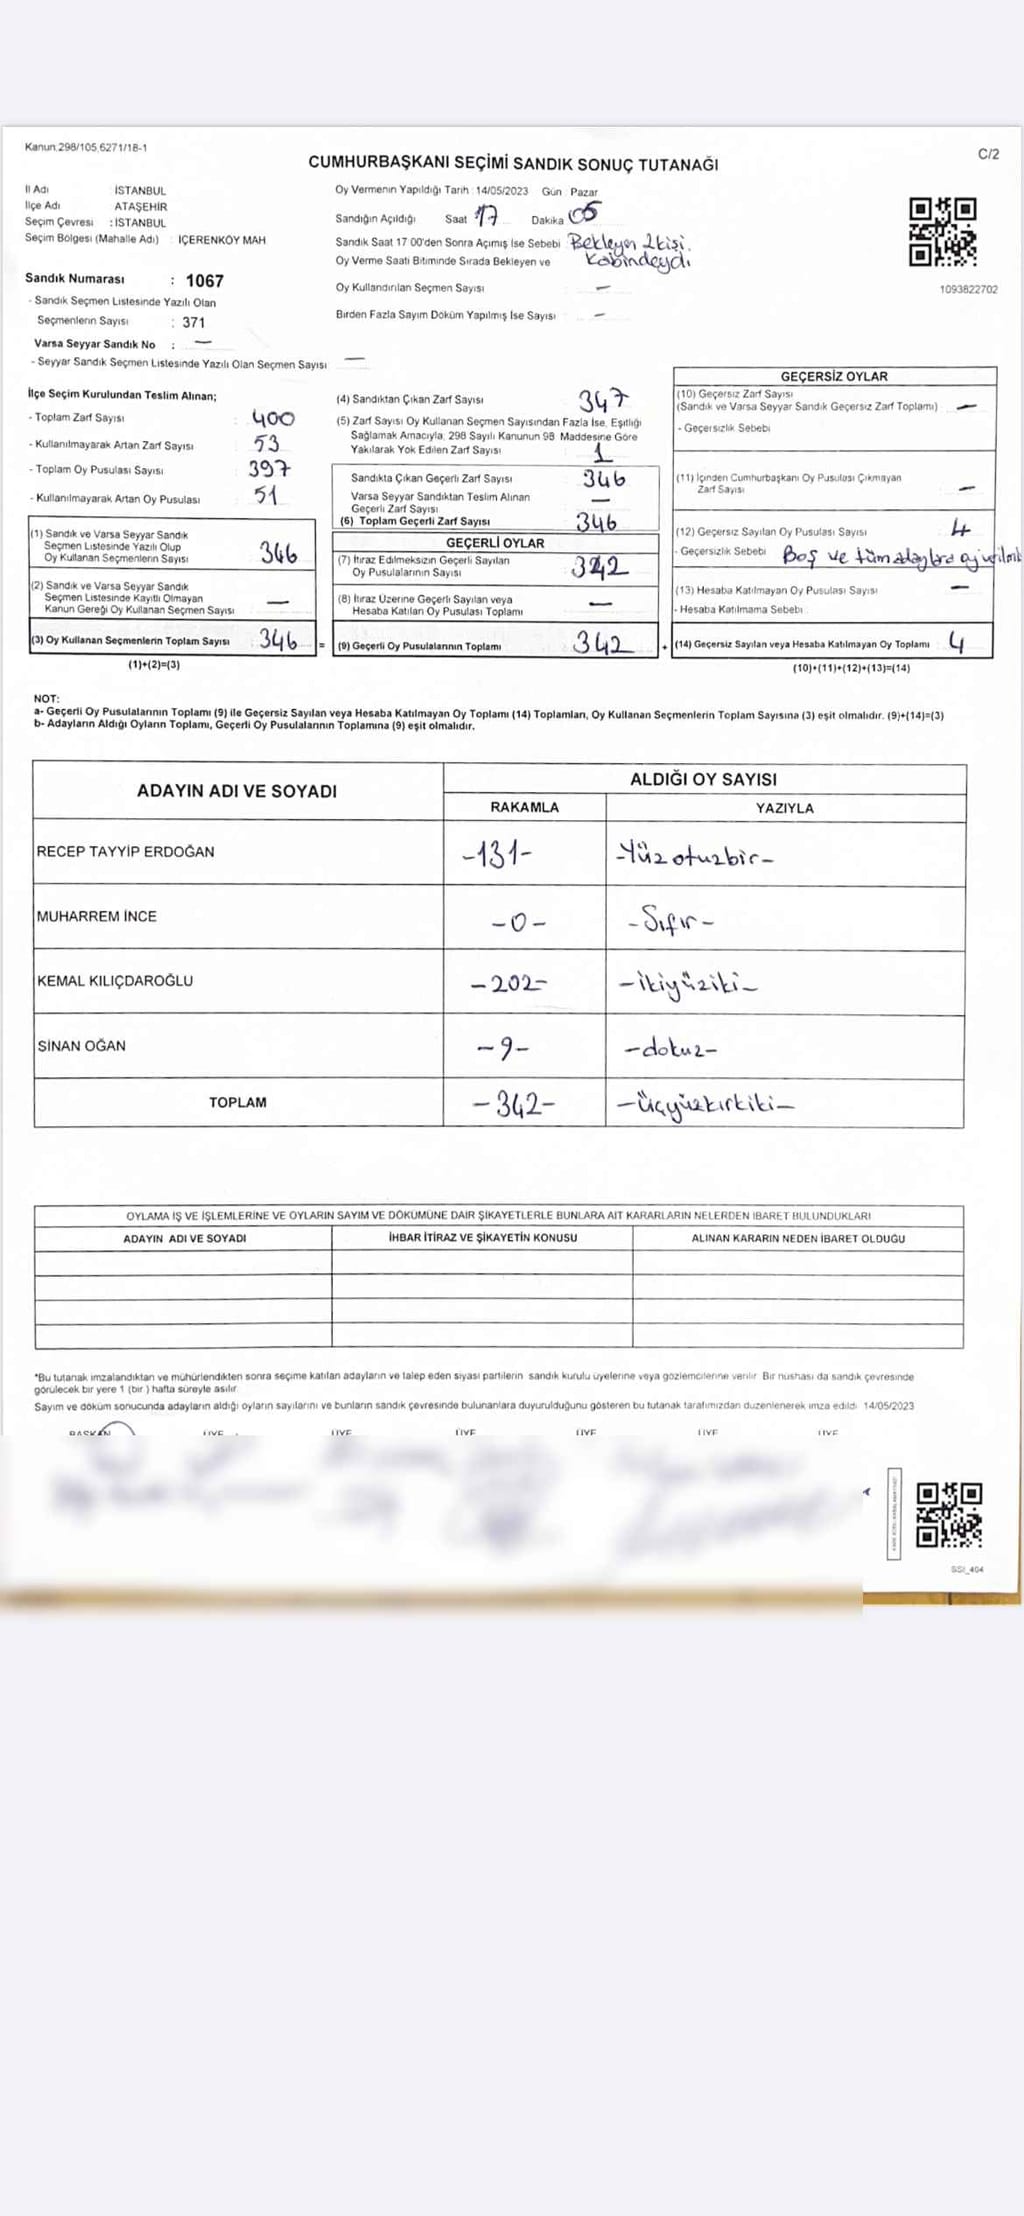 Kanun.298/105,6271/18-1
C/2
CUMHURBAŞKANI SEÇİMİ SANDIK SONUÇ TUTANAĞI
İl Adı İSTANBUL
İlçe Adı ATAŞEHİR
Seçim Çevresi : İSTANBUL
Seçim Bölgesi (Mahalle Adı) : İÇERENKÖY MAH
Sandık Numarası : 1067
- Sandık Seçmen Listesinde Yazılı Olan
Seçmenlerin Sayısı : 371
Varsa Seyyar Sandık No : —
- Seyyar Sandık Seçmen Listesinde Yazılı Olan Seçmen Sayısı —
Oy Vermenin Yapıldığı Tarih : 14/05/2023 Gün Pazar
Sandığın Açıldığı Saat 17 Dakika 05
Sandık Saat 17 00'den Sonra Açımış İse Sebebi Bekleyen 2 kişi.
Oy Verme Saati Bitiminde Sırada Bekleyen ve kabindeydi
Oy Kullandırılan Seçmen Sayısı —
Birden Fazla Sayım Döküm Yapılmış İse Sayısı : —
1093822702
İlçe Seçim Kurulundan Teslim Alınan;
- Toplam Zarf Sayısı : 400
- Kullanılmayarak Artan Zarf Sayısı : 53
- Toplam Oy Pusulası Sayısı : 397
- Kullanılmayarak Artan Oy Pusulası : 51
(1) Sandık ve Varsa Seyyar Sandık
Seçmen Listesinde Yazılı Olup
Oy Kullanan Seçmenlerin Sayısı 346
(2) Sandık ve Varsa Seyyar Sandık
Seçmen Listesinde Kayıtlı Olmayan
Kanun Gereği Oy Kullanan Seçmen Sayısı —
(3) Oy Kullanan Seçmenlerin Toplam Sayısı 346 =
(1)+(2)=(3)
(4) Sandıktan Çıkan Zarf Sayısı 347
(5) Zarf Sayısı Oy Kullanan Seçmen Sayısından Fazla İse, Eşitliği
Sağlamak Amacıyla, 298 Sayılı Kanunun 98 Maddesine Göre
Yakılarak Yok Edilen Zarf Sayısı 1
Sandıkta Çıkan Geçerli Zarf Sayısı 346
Varsa Seyyar Sandıktan Teslim Alınan
Geçerli Zarf Sayısı —
(6) Toplam Geçerli Zarf Sayısı 346
GEÇERLİ OYLAR
(7) İtiraz Edilmeksizin Geçerli Sayılan
Oy Pusulalarının Sayısı 342
(8) İtiraz Üzerine Geçerli Sayılan veya
Hesaba Katılan Oy Pusulası Toplamı —
(9) Geçerli Oy Pusulalarının Toplamı 342 +
GEÇERSİZ OYLAR
(10) Geçersiz Zarf Sayısı
(Sandık ve Varsa Seyyar Sandık Geçersiz Zarf Toplamı) —
- Geçersizlik Sebebi
(11) İçinden Cumhurbaşkanı Oy Pusulası Çıkmayan
Zarf Sayısı —
(12) Geçersiz Sayılan Oy Pusulası Sayısı 4
- Geçersizlik Sebebi Boş ve tüm adaylara oy
(13) Hesaba Katılmayan Oy Pusulası Sayısı —
- Hesaba Katılmama Sebebi
(14) Geçersiz Sayılan veya Hesaba Katılmayan Oy Toplamı 4
(10)+(11)+(12)+(13)=(14)
NOT:
a- Geçerli Oy Pusulalarının Toplamı (9) ile Geçersiz Sayılan veya Hesaba Katılmayan Oy Toplamı (14) Toplamları, Oy Kullanan Seçmenlerin Toplam Sayısına (3) eşit olmalıdır. (9)+(14)=(3)
b- Adayların Aldığı Oyların Toplamı, Geçerli Oy Pusulalarının Toplamına (9) eşit olmalıdır.
ADAYIN ADI VE SOYADI ALDIĞI OY SAYISI
RAKAMLA YAZIYLA
RECEP TAYYİP ERDOĞAN -131- -Yüz otuzbir-
MUHARREM İNCE -0- -Sıfır-
KEMAL KILIÇDAROĞLU -202- -ikiyüziki-
SİNAN OĞAN -9- -dokuz-
TOPLAM -342- -Üçyüzkırkiki-
OYLAMA İŞ VE İŞLEMLERİNE VE OYLARIN SAYIM VE DÖKÜMÜNE DAİR ŞİKAYETLERLE BUNLARA AİT KARARLARIN NELERDEN İBARET BULUNDUKLARI
ADAYIN ADI VE SOYADI İHBAR İTİRAZ VE ŞİKAYETİN KONUSU ALINAN KARARIN NEDEN İBARET OLDUĞU
*Bu tutanak imzalandıktan ve mühürlendikten sonra seçime katılan adayların ve talep eden siyasi partilerin sandık kurulu üyelerine veya gözlemcilerine verilir. Bir nüshası da sandık çevresinde
görülecek bir yere 1 (bir ) hafta süreyle asılır.
Sayım ve döküm sonucunda adayların aldığı oyların sayılarını ve bunların sandık çevresinde bulunanlara duyurulduğunu gösteren bu tutanak tarafımızdan düzenlenerek imza edildi. 14/05/2023
BAŞKAN ÜYE ÜYE ÜYE ÜYE ÜYE ÜYE
SSI_404